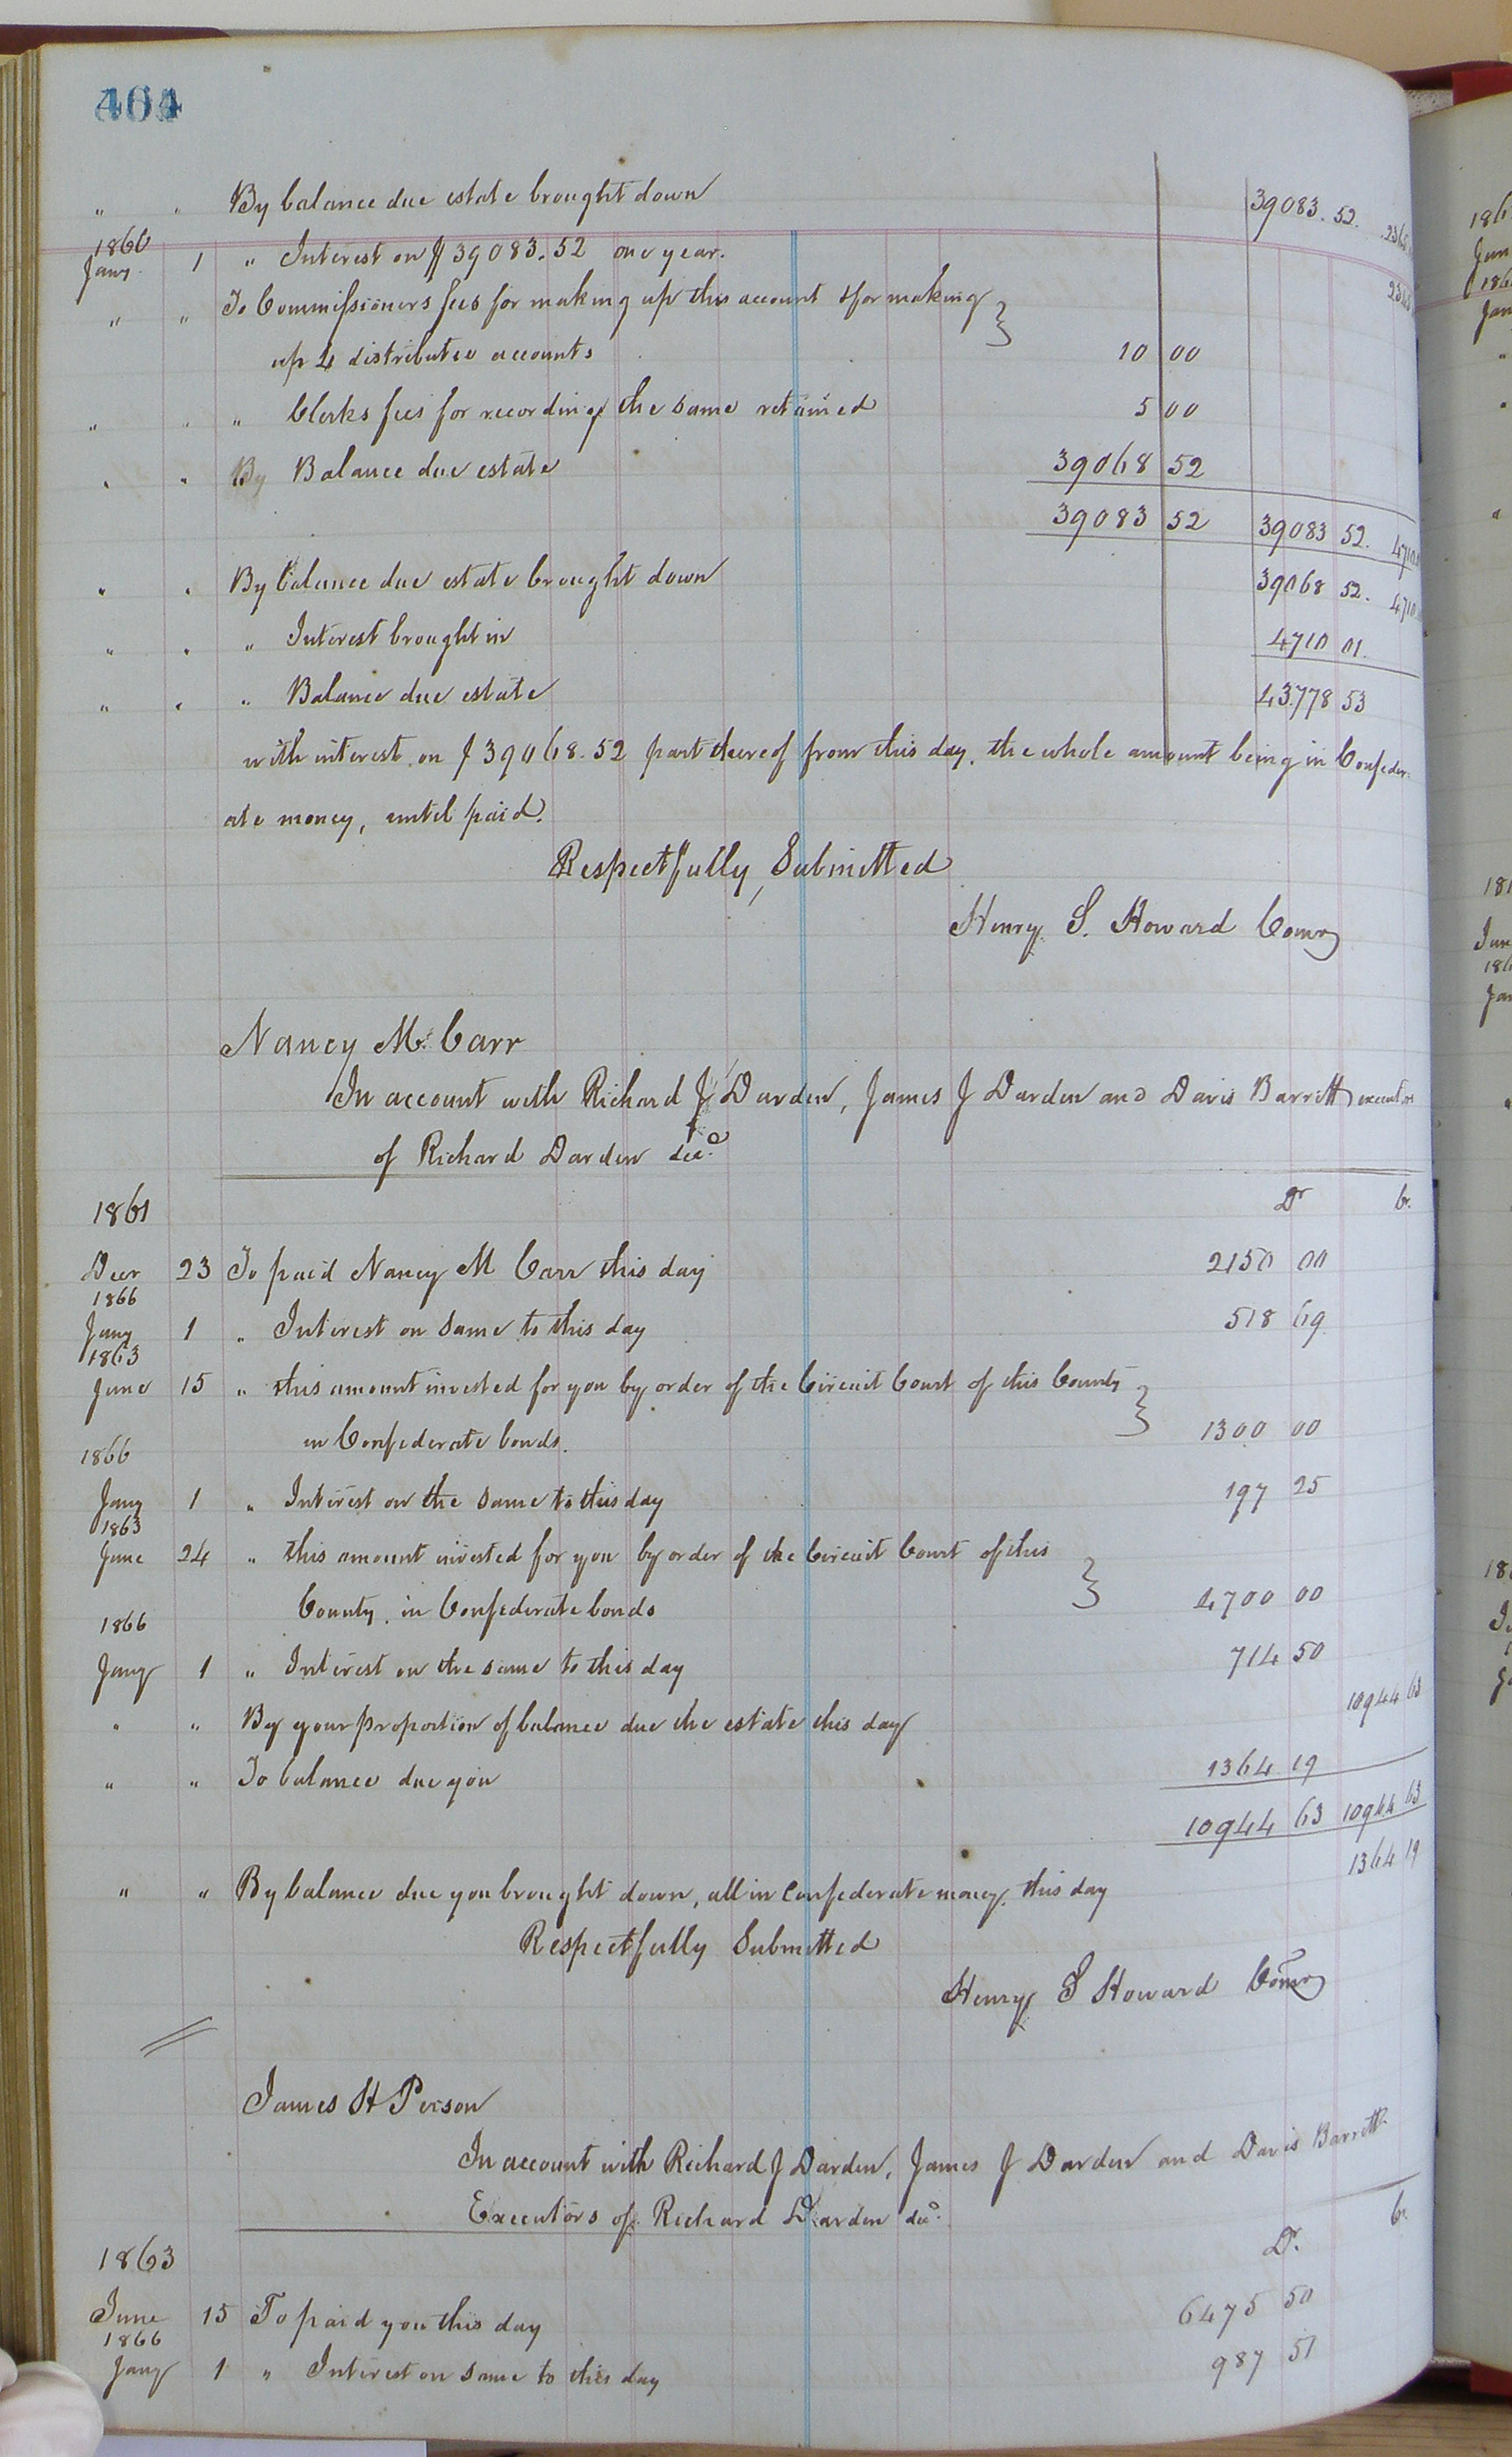 464
" " By balance due estate brought down 39083.52.
1866
Jany 1 " Interest on $39083.52 one year.
" " To Commissioners fees for making up this account & for making
up 4 distributee accounts 10 00
" " " Clerks fees for recording the same retained 5 00
" " By Balance due estate 39068 52
39083 52 39083 52.
" " By balance due estate brought down 39068 52.
" " " Interest brought in 4710 01.
" " " Balance due estate 43778 53
with interest on $39068.52 part thereof from this day, the whole amount being in Confeder-
ate money, until paid.
Respectfully Submitted
Henry S. Howard Comr
Nancy M. Carr
In account with Richard J Darden, James J Darden and Davis Barrett executors
of Richard Darden decd
1861 Dr Cr.
Decr 23 To paid Nancy M Carr this day 2150 00
1866
Jany 1 " Interest on same to this day 518 69
1863
June 15 " this amount invested for you by order of the Circuit Court of this County
in Confederate bonds. 1300 00
1866
Jany 1 " Interest on the same to this day 197 25
1863
June 24 " this amount invested for you by order of the Circuit Court of this
County, in Confederate bonds 4700 00
1866
Jany 1 " Interest on the same to this day 714 50
" " By your proportion of balance due the estate this day 10944 63
" " To balance due you 1364 19
10944 63 10944 63
" " By balance due you brought down, all in Confederate money, this day 1364 19
Respectfully Submitted
Henry S Howard Comr
James H Person
In account with Richard J Darden, James J Darden and Davis Barrett
Executors of Richard Darden decd.
1863 Dr. Cr.
June 15 To paid you this day 6475 50
1866
Jany 1 " Interest on same to this day 987 51